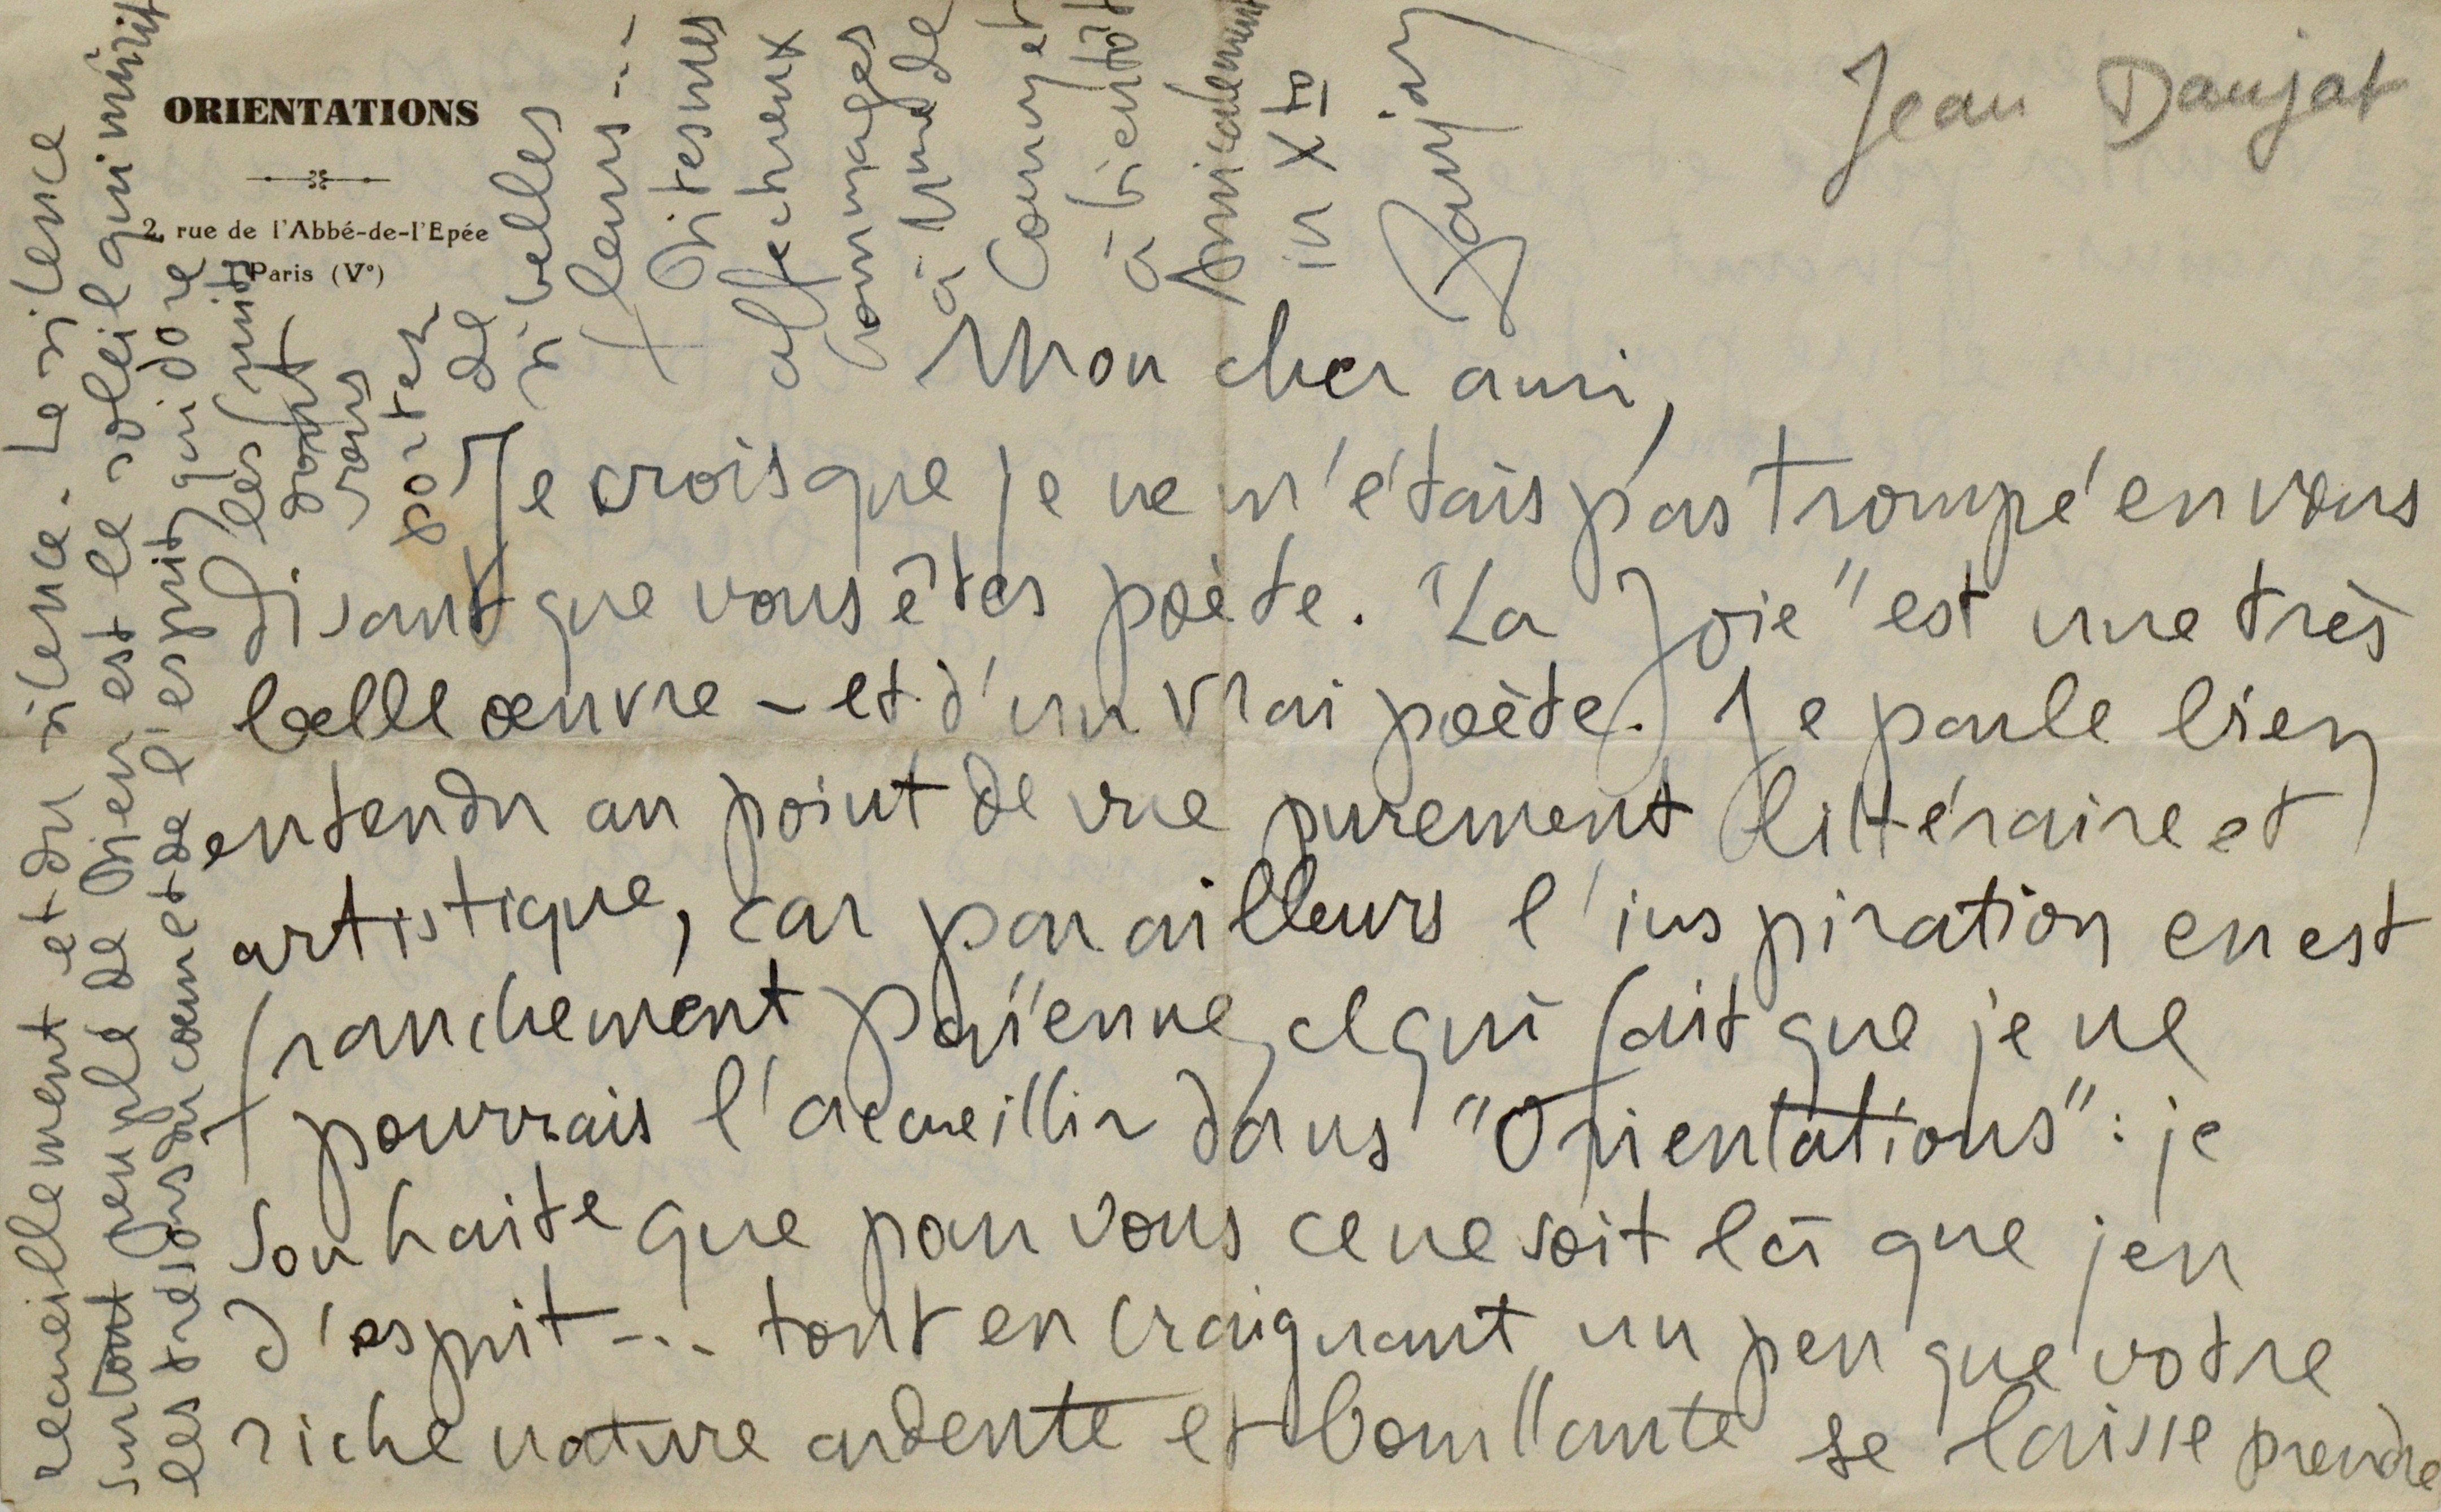 ORIENTATIONS
2, rue de l'Abbé-de-l'Epée
Paris (Vᵉ)
Jean Daujat
Mon cher ami,
Je crois que je ne m'étais pas trompé en vous
disant que vous êtes poète. "La Joie" est une très
belle œuvre - et d'un vrai poète. Je parle bien
entendu au point de vue purement littéraire et
artistique, car par ailleurs l'inspiration en est
franchement païenne, ce qui fait que je ne
pourrais l'accueillir dans "Orientations" : je
souhaite que pour vous ce ne soit là que jeu
d'esprit... tout en craignant un peu que votre
riche nature ardente et bouillante se laisse prendre
recueillement et du silence. Le silence
surtout peuplé de Dieu est le soleil qui mûrit
les trésors du cœur et de l'esprit, qui dore
les fruits
dont
vous
portez
de
si belles
fleurs...
Dites mes
affectueux
hommages
à Mme de
Courny et
à bientôt
Amicalement
in Xto
Daujat